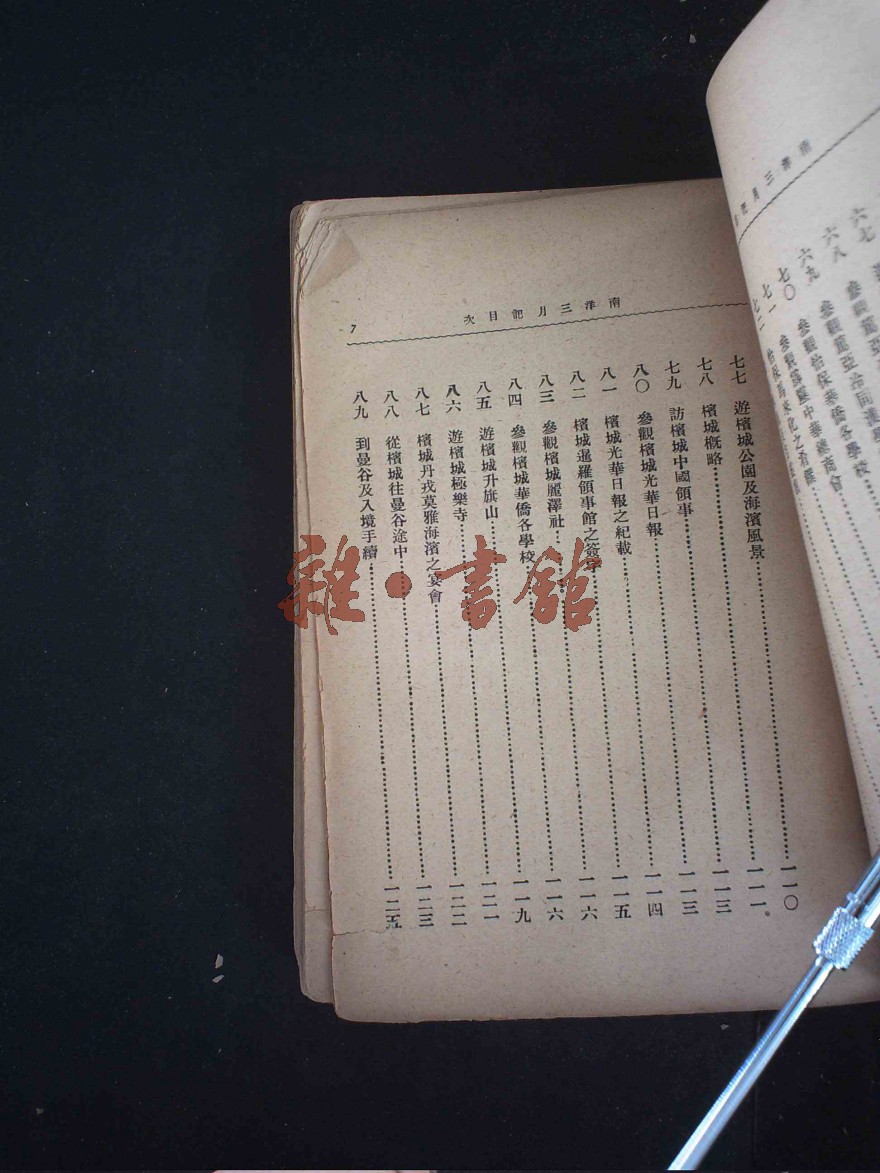 南洋三月記
六七
六八
六九 參觀怡保華僑各學校
七〇 參觀霹靂中華總商會
七一
七二
南洋三月記目次
7
七七 遊檳城公園及海濱風景……一一〇
七八 檳城概略……一一一
七九 訪檳城中國領事……一一三
八〇 參觀檳城光華日報……一一三
八一 檳城光華日報之紀載……一一四
八二 檳城暹羅領事館之簽字……一一五
八三 參觀檳城麗澤社……一一六
八四 參觀檳城華僑各學校……一一六
八五 遊檳城升旗山……一一九
八六 遊檳城極樂寺……一二一
八七 檳城丹戎莫雅海濱之宴會……一二二
八八 從檳城往曼谷途中……一二三
八九 到曼谷及入境手續……一二五
雜·書館